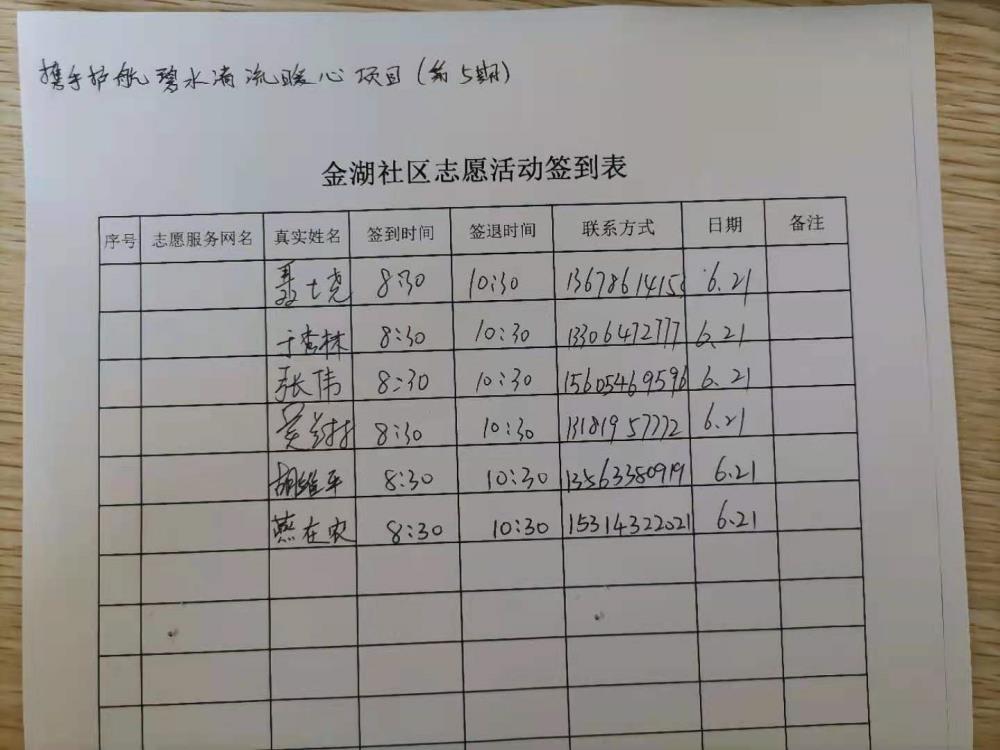 携手护航碧水清流暖心项目(第5期)
金湖社区志愿活动签到表
序号 志愿服务网名 真实姓名 签到时间 签退时间 联系方式 日期 备注
8:30 10:30 6.21
于杏林 8:30 10:30 13306472777 6.21
张伟 8:30 10:30 15605469596 6.21
8:30 10:30 13181957772 6.21
胡维军 8:30 10:30 13563380919 6.21
燕在农 8:30 10:30 15314322021 6.21